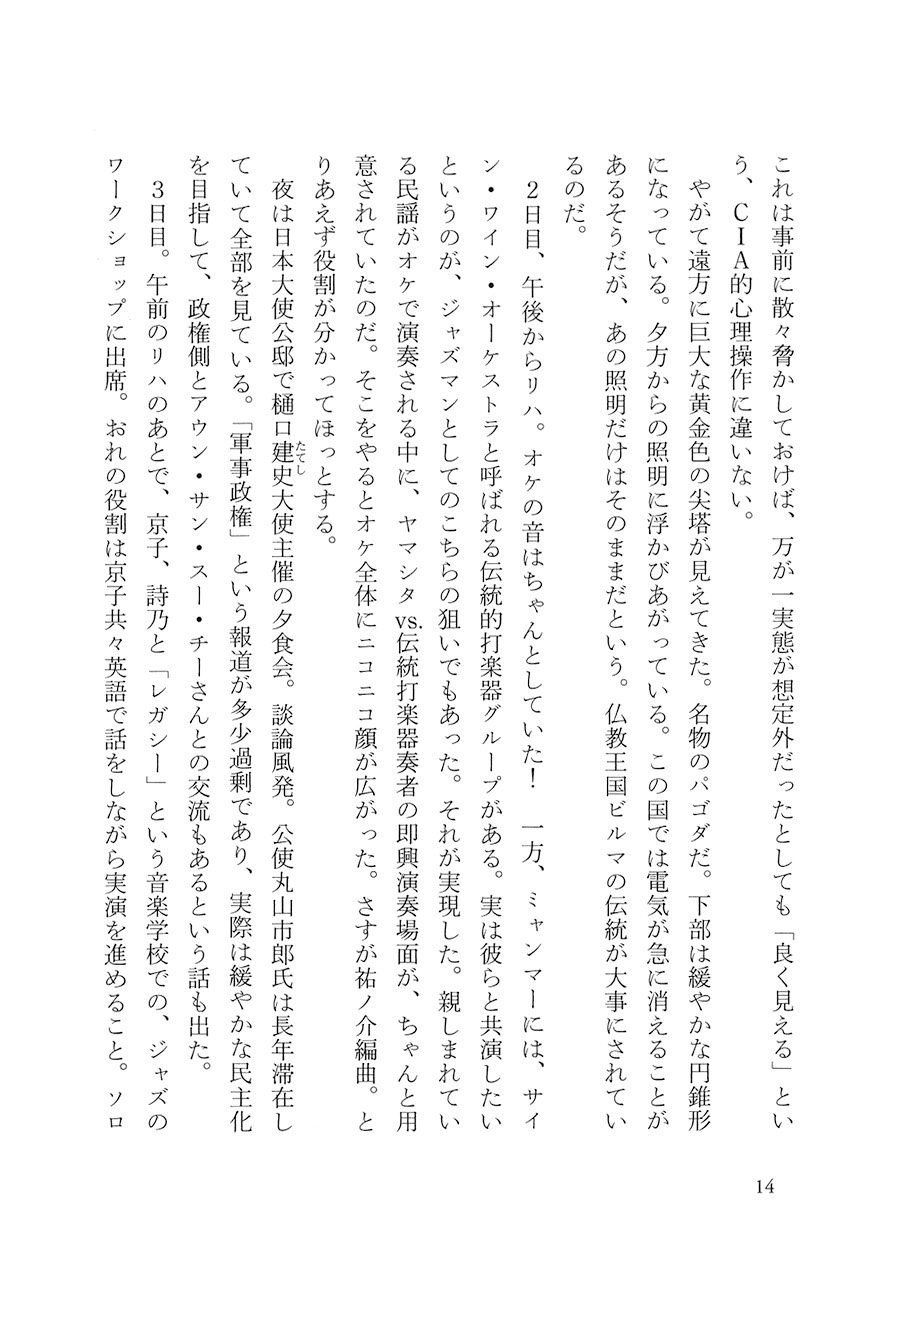 これは事前に散々脅かしておけば、万が一実態が想定外だったとしても「良く見える」とい
う、CIA的心理操作に違いない。
　やがて遠方に巨大な黄金色の尖塔が見えてきた。名物のパゴダだ。下部は緩やかな円錐形
になっている。夕方からの照明に浮かびあがっている。この国では電気が急に消えることが
あるそうだが、あの照明だけはそのままだという。仏教王国ビルマの伝統が大事にされてい
るのだ。
　2日目、午後からリハ。オケの音はちゃんとしていた！　一方、ミャンマーには、サイ
ン・ワイン・オーケストラと呼ばれる伝統的打楽器グループがある。実は彼らと共演したい
というのが、ジャズマンとしてのこちらの狙いでもあった。それが実現した。親しまれてい
る民謡がオケで演奏される中に、ヤマシタvs.伝統打楽器奏者の即興演奏場面が、ちゃんと用
意されていたのだ。そこをやるとオケ全体にニコニコ顔が広がった。さすが祐ノ介編曲。と
りあえず役割が分かってほっとする。
　夜は日本大使公邸で樋口建史大使主催の夕食会。談論風発。公使丸山市郎氏は長年滞在し
たてし
ていて全部を見ている。「軍事政権」という報道が多少過剰であり、実際は緩やかな民主化
を目指して、政権側とアウン・サン・スー・チーさんとの交流もあるという話も出た。
　3日目。午前のリハのあとで、京子、詩乃と「レガシー」という音楽学校での、ジャズの
ワークショップに出席。おれの役割は京子共々英語で話をしながら実演を進めること。ソロ
14